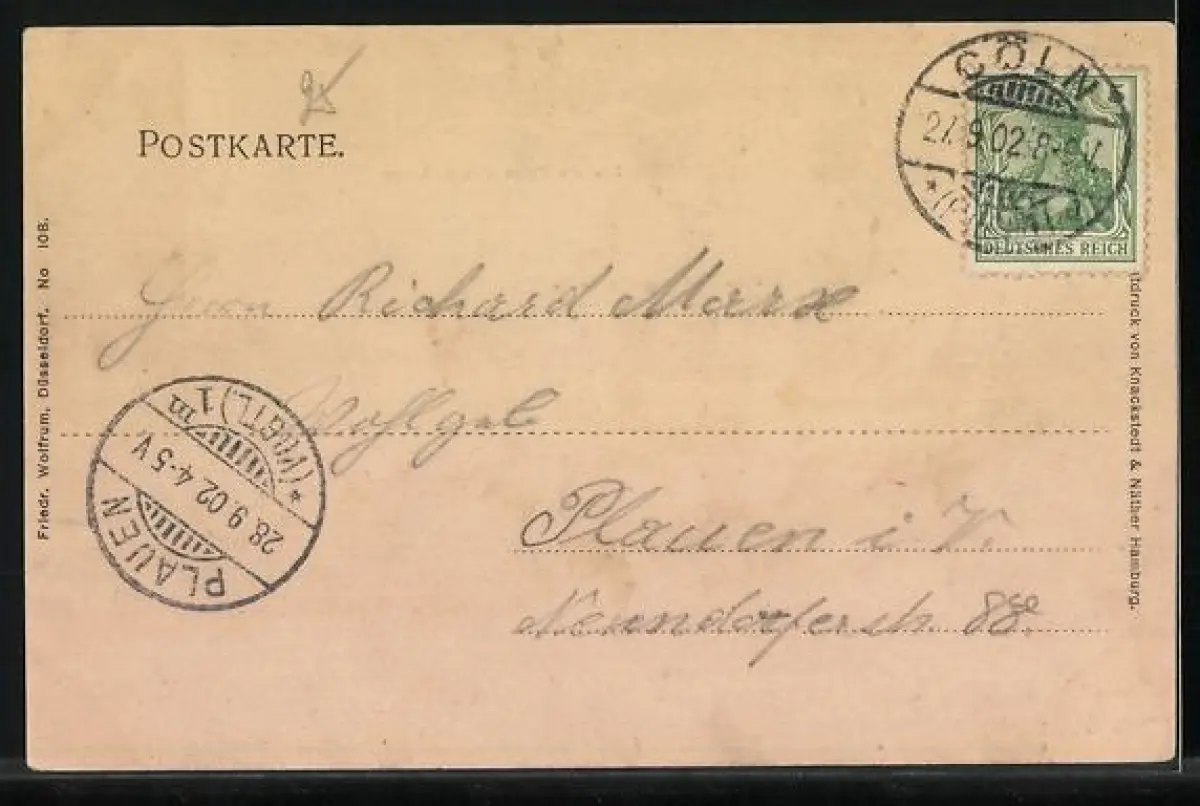 POSTKARTE.
CÖLN
27.9.02 8-9 V.
DEUTSCHES REICH
Herrn Richard Marx
Wohlgeb
Plauen i. V.
Neundorferstr. 88
PLAUEN
28.9.02 4-5 V
(VOGTL.) 1 m
Friedr. Wolfrum, Düsseldorf. No 108.
tdruck von Knackstedt & Näther Hamburg.